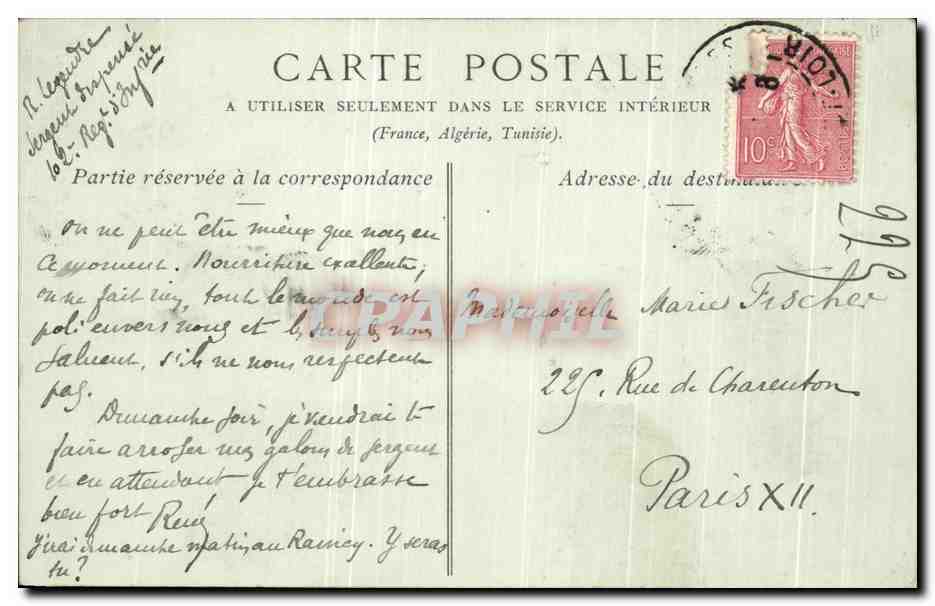 R. Legendre
Sergent dispensé
102e Regt d'Infrie
CARTE POSTALE
A UTILISER SEULEMENT DANS LE SERVICE INTÉRIEUR
(France, Algérie, Tunisie).
Partie réservée à la correspondance
on ne peut être mieux que nous en
ce moment. Nourriture exallente,
on ne fait rien, tout le monde est
poli envers nous et les simples nous
saluent, s'ils ne nous respectent
pas.
Dimanche soir, je viendrai te
faire arroser mes galons de sergent
et en attendant je t'embrasse
bien fort René
J'irai dimanche matin au Raincy. Y seras
tu?
10c
LOIR
Adresse du destinataire
Mademoiselle Marie Fischer
225. Rue de Charenton
Paris XII.
225
CPAPHIL